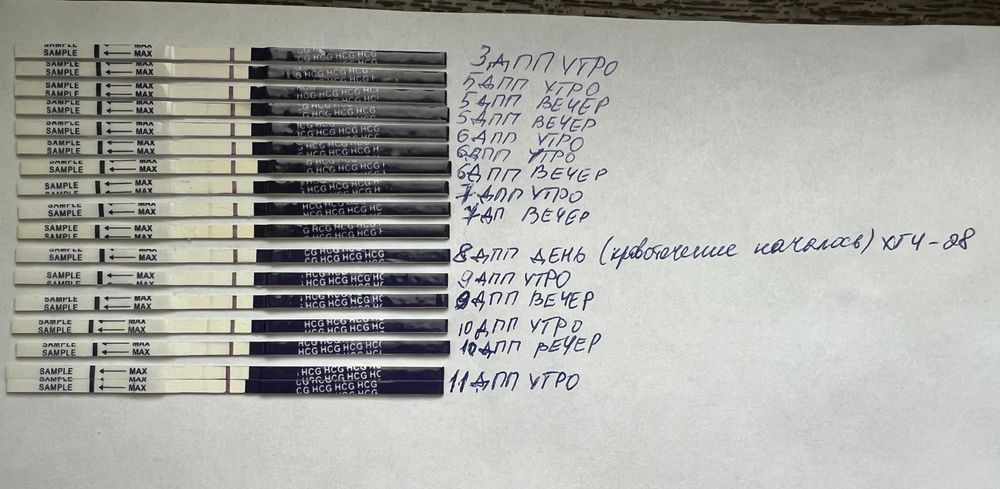 SAMPLE MAX HCG HCG HCG 3 ДПП УТРО
SAMPLE MAX HCG HCG HCG 5 ДПП УТРО
SAMPLE MAX HCG HCG HCG 5 ДПП ВЕЧЕР
SAMPLE MAX HCG HCG HCG 5 ДПП ВЕЧЕР
SAMPLE MAX HCG HCG HCG 6 ДПП УТРО
SAMPLE MAX HCG HCG HCG 6 ДПП УТРО
SAMPLE MAX HCG HCG HCG 6 ДПП ВЕЧЕР
SAMPLE MAX HCG HCG HCG 7 ДПП УТРО
SAMPLE MAX HCG HCG HCG 7 ДП ВЕЧЕР
SAMPLE MAX HCG HCG HCG
SAMPLE MAX HCG HCG HCG 8 ДПП ДЕНЬ (кровотечение началось) ХГЧ-28
SAMPLE MAX HCG HCG HCG 9 ДПП УТРО
SAMPLE MAX HCG HCG HCG 9 ДПП ВЕЧЕР
SAMPLE MAX HCG HCG HCG HC 10 ДПП УТРО
SAMPLE MAX HCG HCG HCG HC 10 ДПП ВЕЧЕР
SAMPLE MAX HCG HCG HCG 11 ДПП УТРО
SAMPLE MAX CG HCG HCG HCG